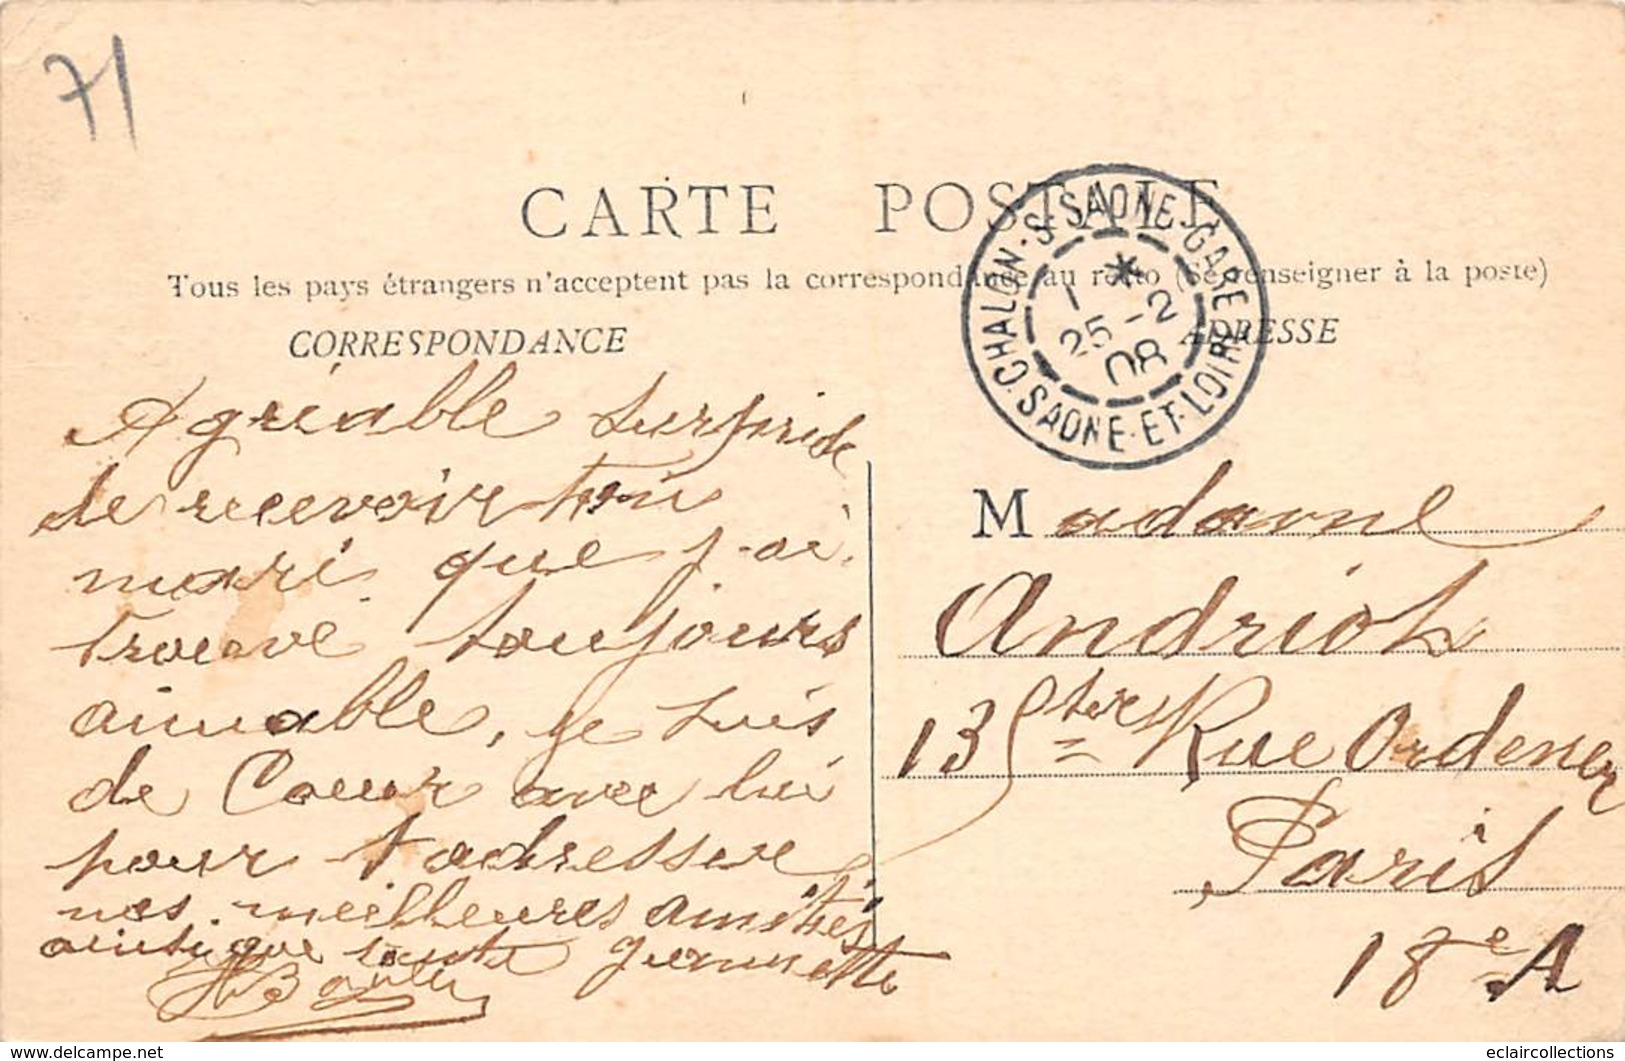 71
CARTE POSTALE
Tous les pays étrangers n'acceptent pas la correspondance au recto (Se renseigner à la poste)
CORRESPONDANCE
ADRESSE
CHALON-S-SAONE-GARE
SAONE-ET-LOIRE
1 *
25 -2
08
Agréable surprise
de recevoir ton
mari que j'ai
trouvé toujours
aimable, je suis
de Coeur avec lui
pour t'adresser
nos meilleures amitiés
ainsi que tante Jeannette
Madame
Andriot
13 Rue Ordener
Paris
18e A
eclaircollections
delcampe.net